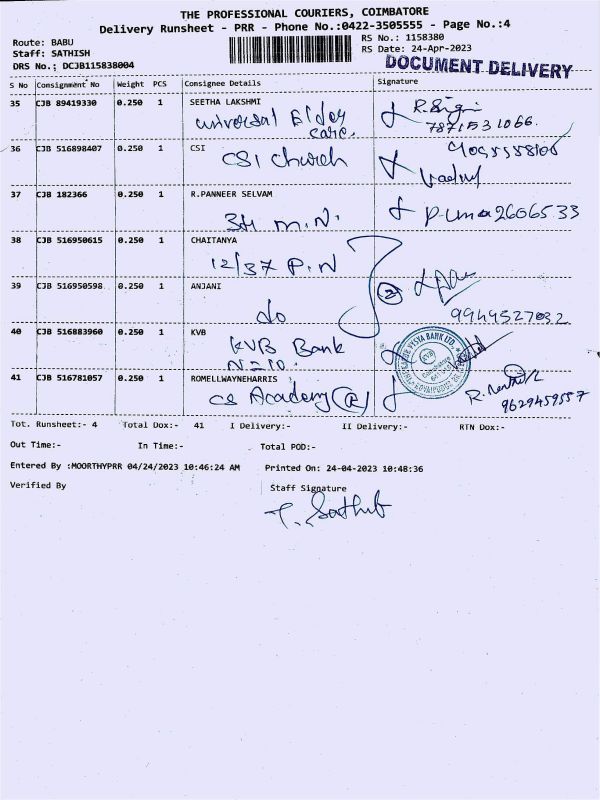 THE PROFESSIONAL COURIERS, COIMBATORE
Delivery Runsheet - PRR - Phone No.:0422-3505555 - Page No.:4
Route: BABU
Staff: SATHISH
DRS No.: DCJB115838004
RS No.: 1158380
RS Date: 24-Apr-2023
DOCUMENT DELIVERY
S No Consignment No Weight PCS Consignee Details Signature
35 CJB 89419330 0.250 1 SEETHA LAKSHMI
universal Elder care.
7871531066.
36 CJB 516898407 0.250 1 CSI
CSI church
37 CJB 182366 0.250 1 R.PANNEER SELVAM
34 M.N.
P-uma 26065 33
38 CJB 516950615 0.250 1 CHAITANYA
12/37 P.N
39 CJB 516950598 0.250 1 ANJANI
do
2
9944527032
40 CJB 516883960 0.250 1 KVB
KVB Bank
VYSYA BANK LTD.
KVB
41 CJB 516781057 0.250 1 ROMELLWAYNEHARRIS
CS Academy (R)
9629459557
Tot. Runsheet:- 4 Total Dox:- 41 I Delivery:- II Delivery:- RTN Dox:-
Out Time:- In Time:- Total POD:-
Entered By :MOORTHYPRR 04/24/2023 10:46:24 AM Printed On: 24-04-2023 10:48:36
Verified By Staff Signature